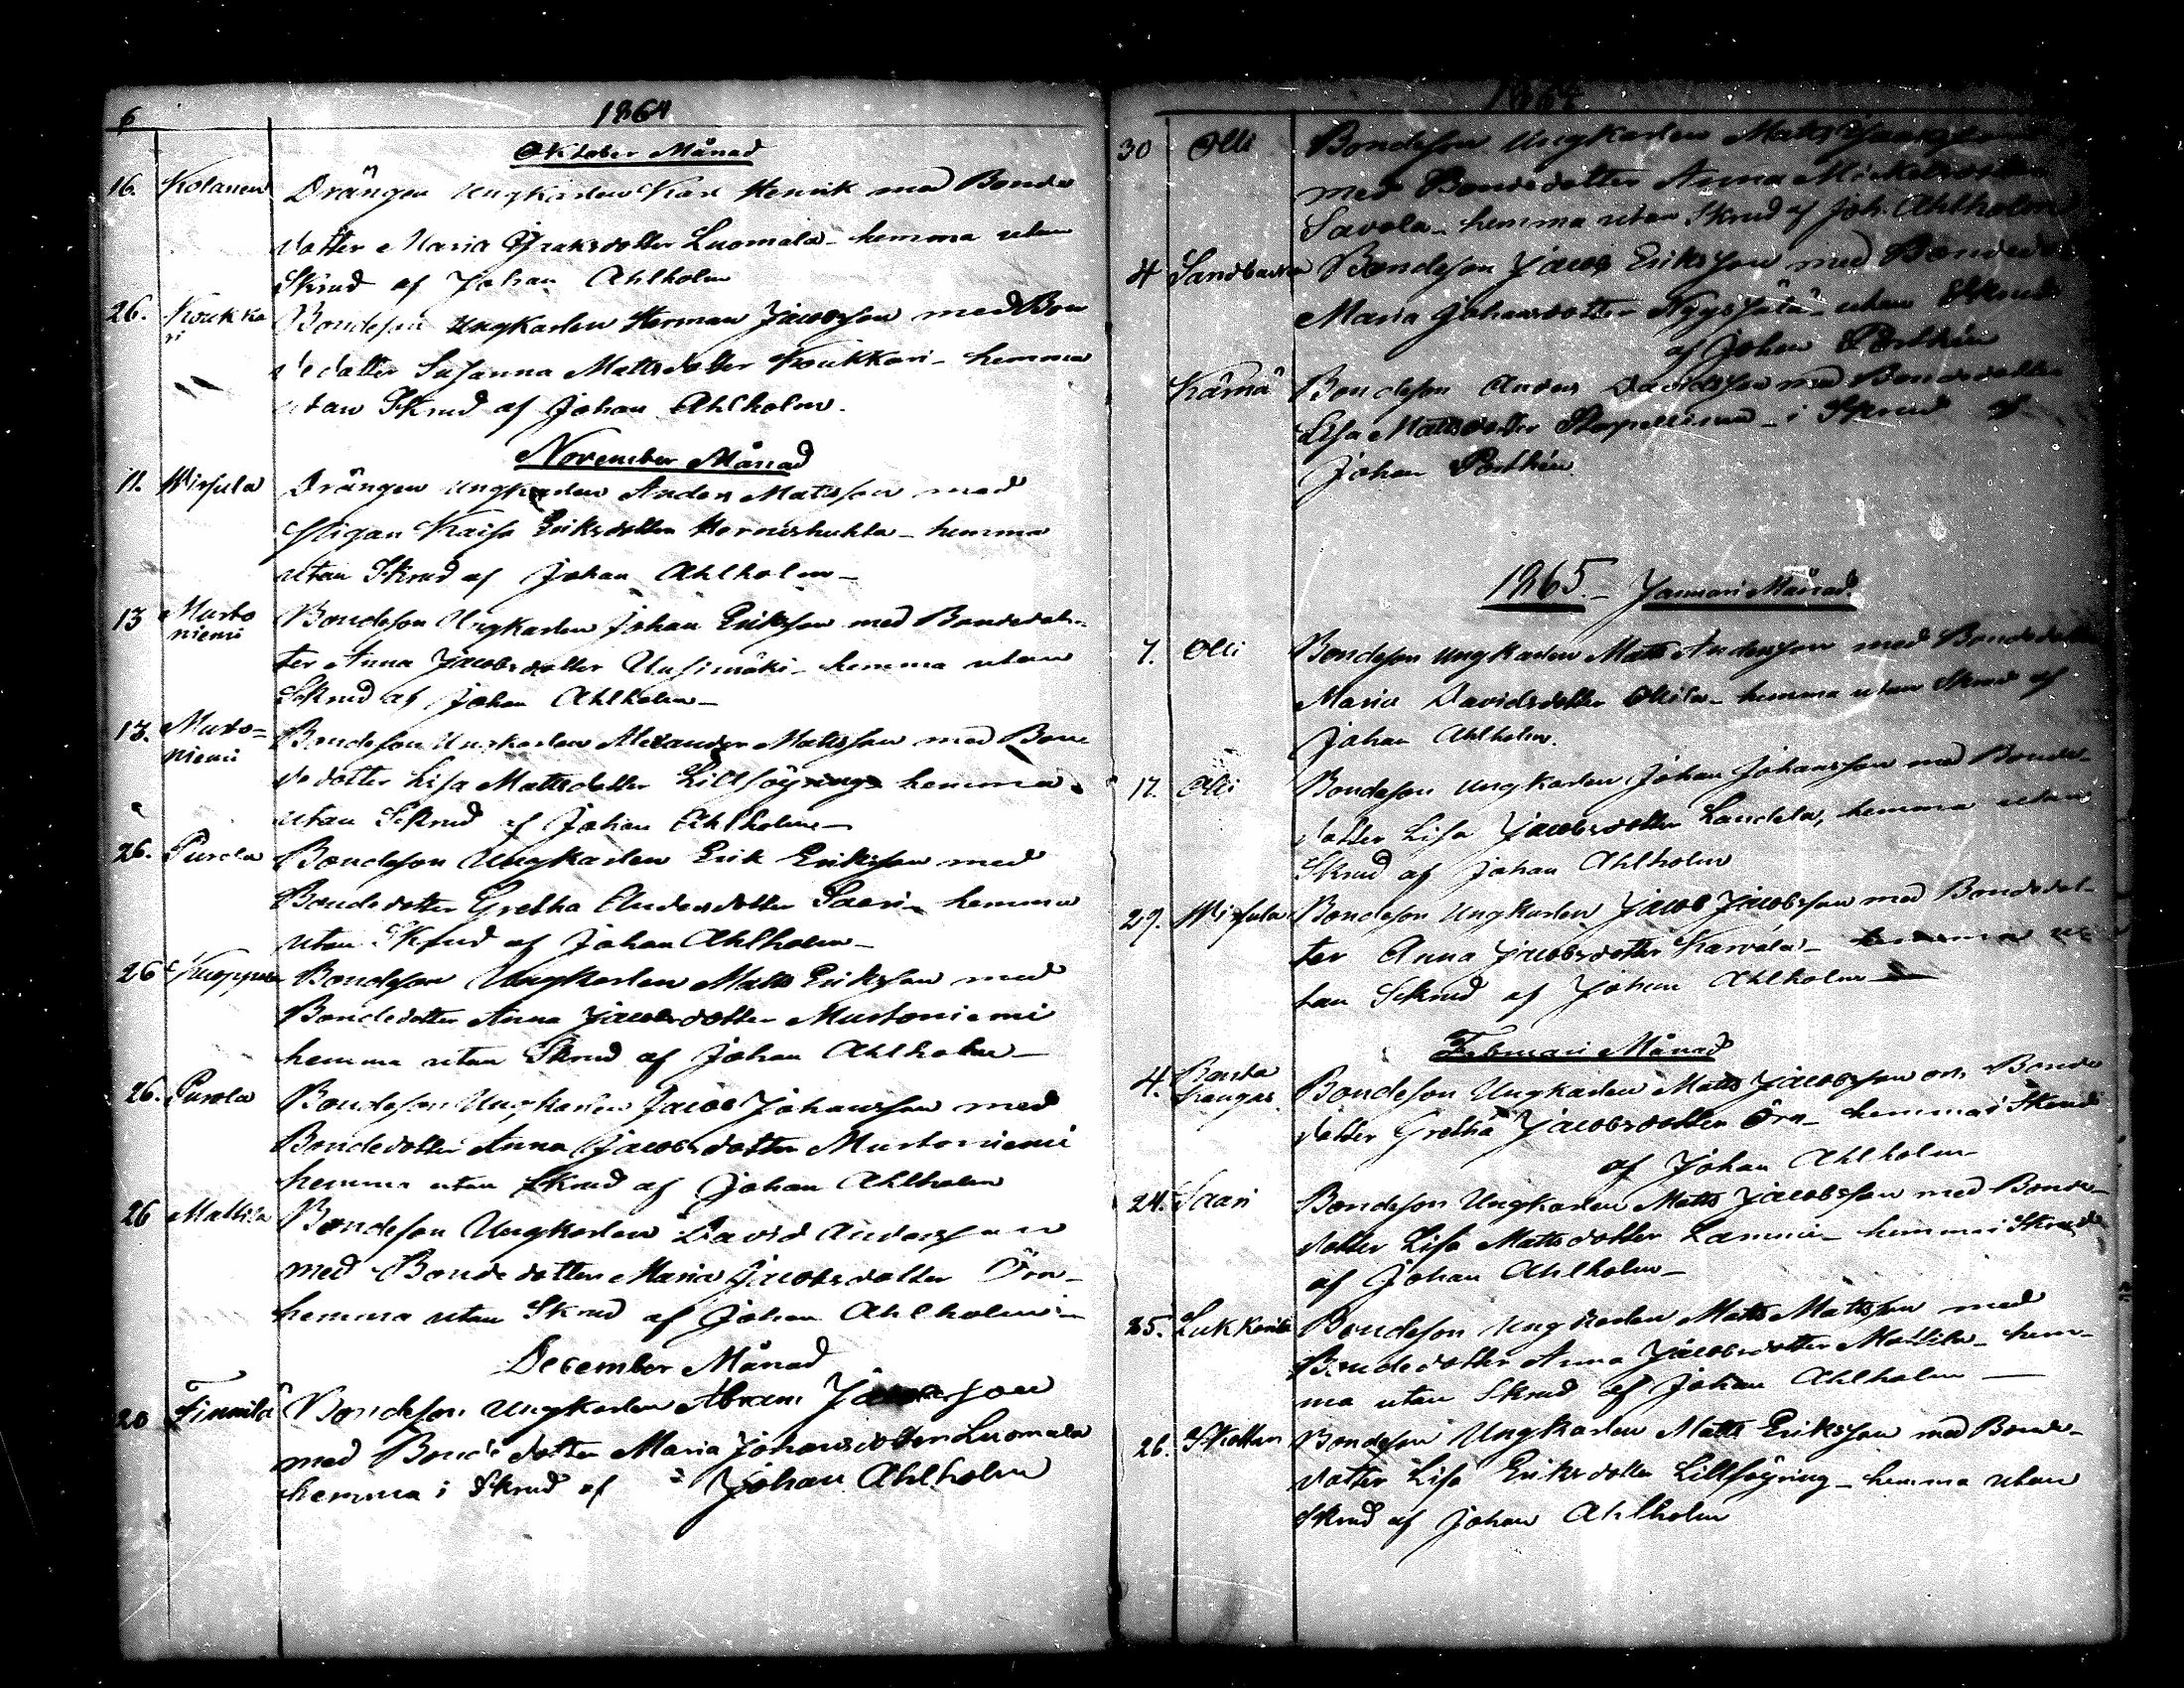 6
1864
Oktober Månad
16. Kotanen Drängen Ungkarlen Karl Henrik med Bonde
dotter Maria Isaksdotter Luomala - hemma utan
Skrud af Johan Ahlholm
26. Koukka
ri Bondeson Ungkarlen Herman Jacobsson med Bon
dedotter Susanna Mattsdotter Koukkari - hemma
utan Skrud af Johan Ahlholm.
November Månad
11. Wirfula Drängen Ungkarlen Anders Mattsson med
Pigan Kaisa Eriksdotter - hemma
utan Skrud af Johan Ahlholm -
13 Murto
niemi Bondeson Ungkarlen Johan Eriksson med Bondedot-
ter Anna Jacobsdotter Uusimäki - hemma utan
Skrud af Johan Ahlholm -
13. Murto=
niemi Bondeson Ungkarlen Alexander Mattsson med Bon
dedotter Lisa Mattsdotter Lillsöyring hemma
utan Skrud af Johan Ahlholm -
26. Purola Bondeson Ungkarlen Erik Eriksson med
Bondedotter Gretha Andersdotter Saari - hemma
utan Skrud af Johan Ahlholm -
26 Bondeson Ungkarlen Matts Eriksson med
Bondedotter Anna Jacobsdotter Murtoniemi
hemma utan Skrud af Johan Ahlholm -
26. Purola Bondeson Ungkarlen Jacob Johansson med
Bondedotter Anna Jacobsdotter Murtoniemi
hemma utan Skrud af Johan Ahlholm
26 Mattila Bondeson Ungkarlen David Andersson
med Bondedotter Maria Jacobsdotter Örn -
hemma utan Skrud af Johan Ahlholm -
December Månad
20 Finnilä Bondeson Ungkarlen Abram
med Bondedotter Maria Johansdotter Luomala
hemma i Skrud af Johan Ahlholm
1864
30 Olli Bondeson Ungkarlen Matts
med Bondedotter Anna Mickelsdotter
Savola - hemma utan Skrud af Joh. Ahlholm
4 Sandbacka Bondeson Jacob Eriksson med Bonded
Maria Johansdotter - utan Skrud
af Johan Porthén
Kärnä Bondeson Anders Davidsson med Bondedotter
Lisa Mattsdotter - i Skrud af
Johan Porthén.
1865. - Januari Månad.
7. Olli Bondeson Ungkarlen Matts Andersson med Bondedotter
Maria Davidsdotter Ollila - hemma utan Skrud af
Johan Ahlholm.
17. Olli Bondeson Ungkarlen Johan Johansson med Bonde-
dotter Lisa Jacobsdotter Landela, hemma utan
Skrud af Johan Ahlholm
29. Wirfula Bondeson Ungkarlen Jacob Jacobsson med Bondedot-
ter Anna Jacobsdotter Karvala - hemma u
tan Skrud af Johan Ahlholm -
Februari Månad
4. Ranta
kangas Bondeson Ungkarlen Matts Jacobsson och Bonde
dotter Gretha Jacobsdotter Örn - hemma i Skrud
af Johan Ahlholm
24. Saari Bondeson Ungkarlen Matts Jacobsson med Bonde-
dotter Lisa Mattsdotter Lammi - hemma i Skrud
af Johan Ahlholm -
25. Lukkarila Bondeson Ungkarlen Matts Mattsson med
Bondedotter Anna Jacobsdotter Mattila - hem-
ma utan Skrud af Johan Ahlholm -
26. Skottar Bondeson Ungkarlen Matts Eriksson med Bonde-
dotter Lisa Eriksdotter Lillsöyring - hemma utan
Skrud af Johan Ahlholm